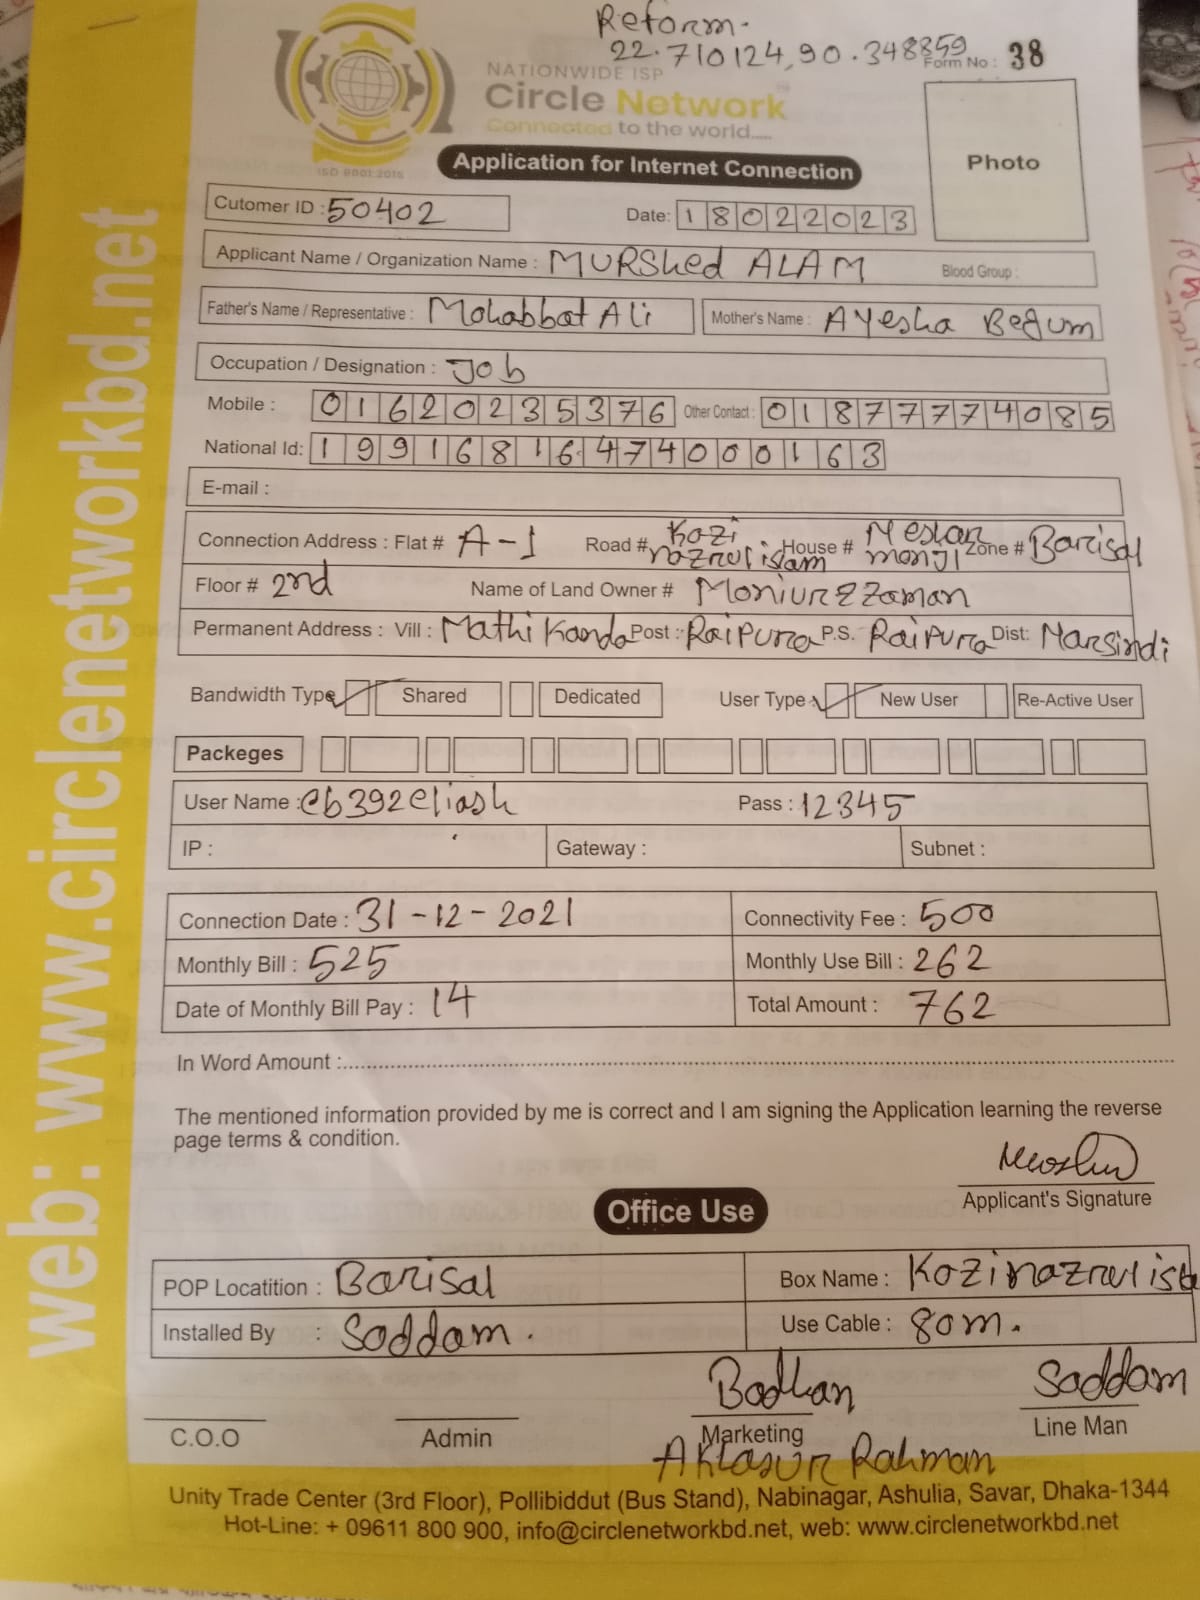 Reform-
22.710124,90.348859
Form No : 38
NATIONWIDE ISP
Circle Network
Connected to the world.....
ISO 9001:2015
Application for Internet Connection
Photo
Cutomer ID : 50402
Date: 18022023
Applicant Name / Organization Name : MURShed ALAM Blood Group :
Father's Name / Representative : Mohabbat Ali Mother's Name : Ayesha Begum
Occupation / Designation : Job
Mobile : 01620235376 Other Contact : 01877774085
National Id: 19916816474000163
E-mail :
Connection Address : Flat # A-1 Road # Kazi nozrul islam House # Meshan monjil Zone # Barisal
Floor # 2nd Name of Land Owner # Moniurzzaman
Permanent Address : Vill : Mathi Kanda Post : Raipura P.S. Raipura Dist: Narsindi
Bandwidth Type Shared Dedicated User Type New User Re-Active User
Packeges
User Name : cb392eliash Pass : 12345
IP : Gateway : Subnet :
Connection Date : 31-12-2021 Connectivity Fee : 500
Monthly Bill : 525 Monthly Use Bill : 262
Date of Monthly Bill Pay : 14 Total Amount : 762
In Word Amount :
The mentioned information provided by me is correct and I am signing the Application learning the reverse
page terms & condition.
Applicant's Signature
Office Use
POP Locatition : Barisal Box Name : Kozi nazrul isla
Installed By : Soddam. Use Cable : 80m.
Bodhan Soddam
C.O.O Admin Marketing Line Man
Rahman
Unity Trade Center (3rd Floor), Pollibiddut (Bus Stand), Nabinagar, Ashulia, Savar, Dhaka-1344
Hot-Line: + 09611 800 900, info@circlenetworkbd.net, web: www.circlenetworkbd.net
web: www.circlenetworkbd.net